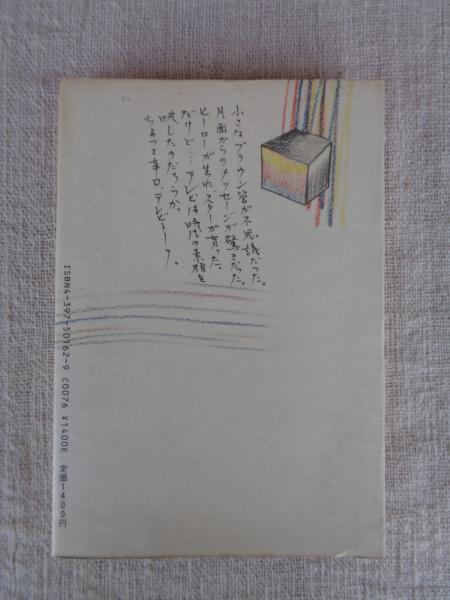 小さなブラウン管が不思議だった。
月面からのメッセージが驚きだった。
ヒーローが生れ、スターが育った。
だけど…テレビは時代の素顔を
映したのだろうか。
ちょっと辛口、テレビトーク。
ISBN4-397-50162-9 C0076 ¥1400E 定価1400円